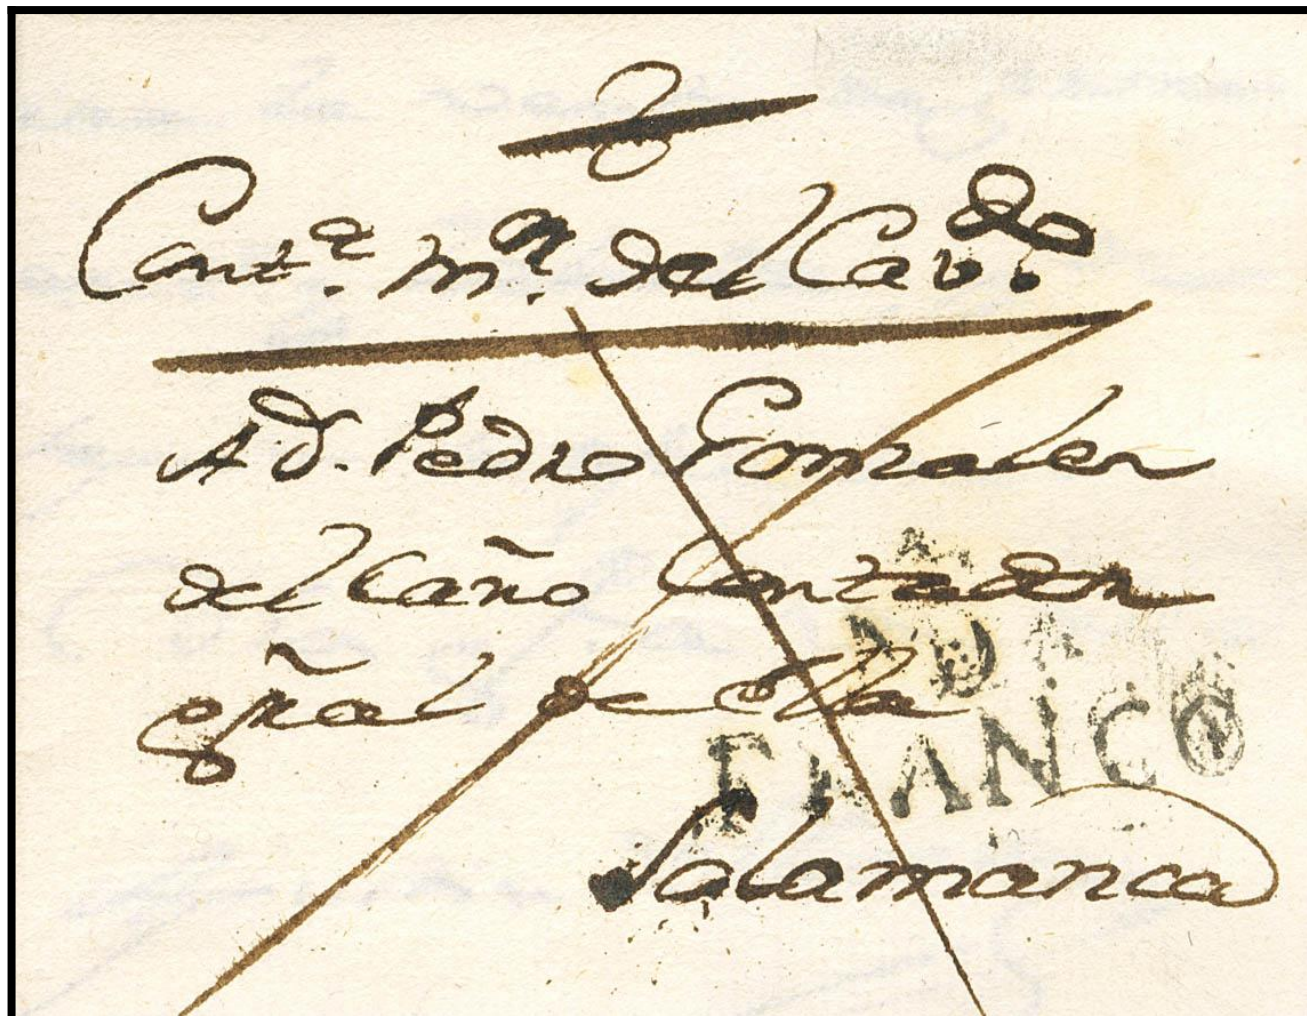 Contª. mᵒʳ. del Cavᵈᵒ.
A D. Pedro Gonzalez
del Caño Contador
gñral de ella
FRANCO
Salamanca